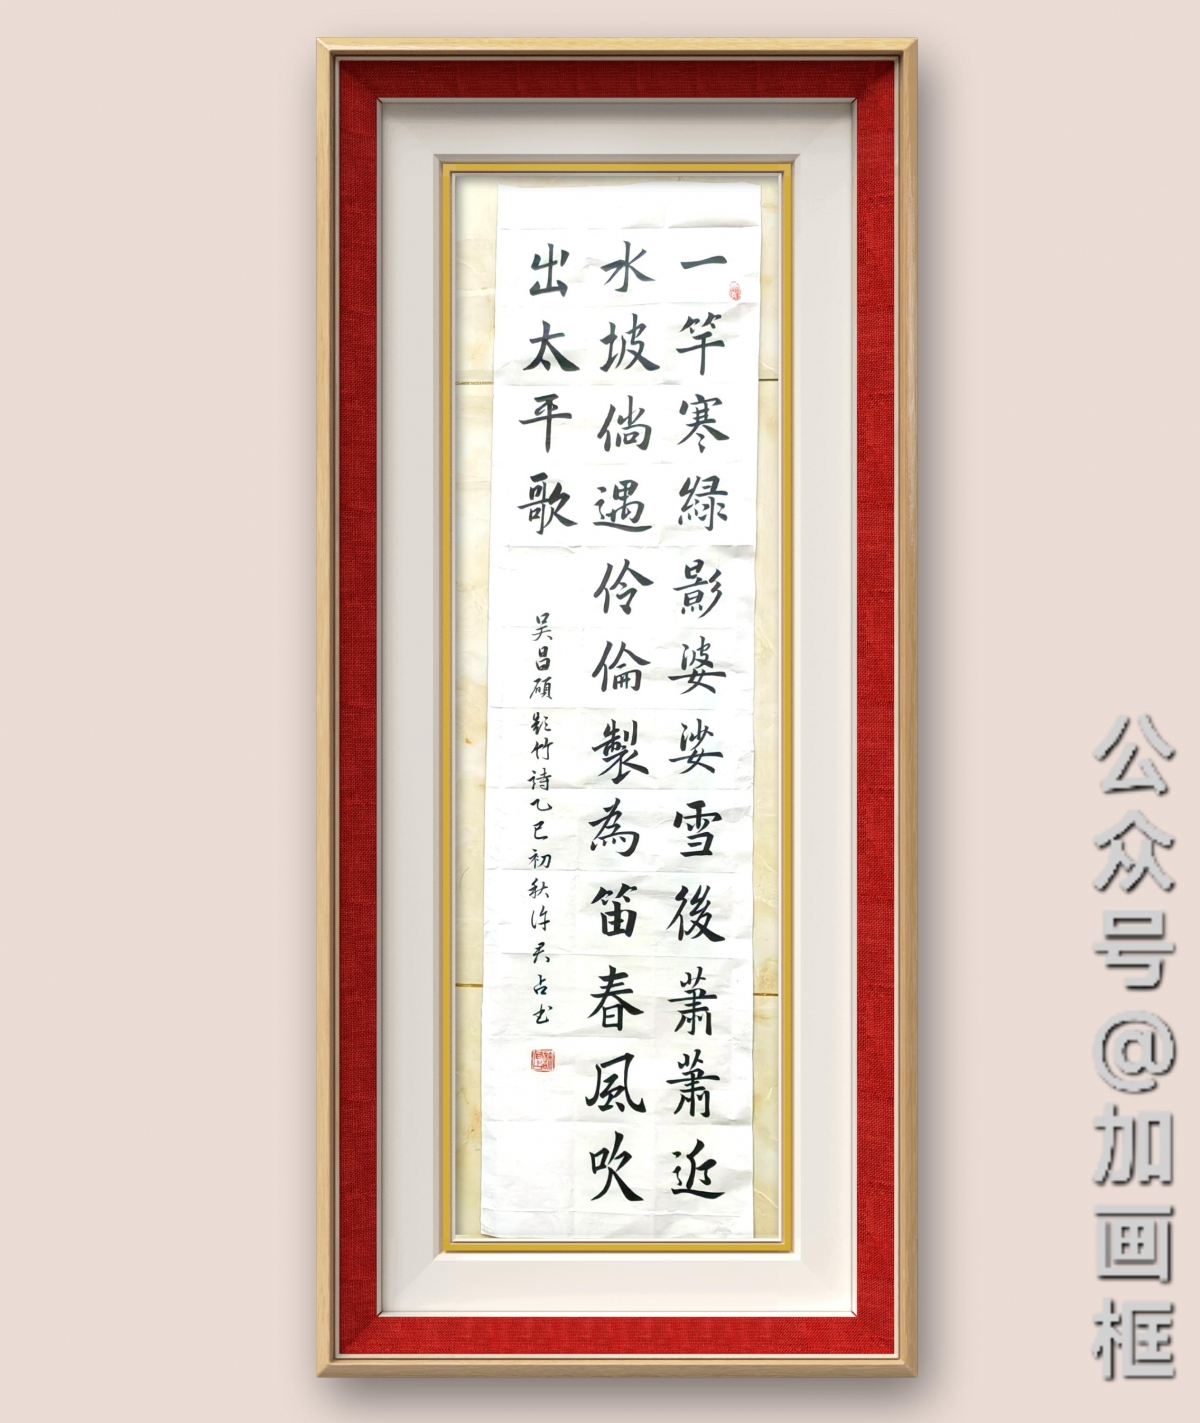 一竿寒緑影婆娑雪後蕭蕭近
水坡倘遇伶倫製為笛春風吹
出太平歌
吴昌碩 題竹诗乙巳初秋许君占书
公众号@加画框